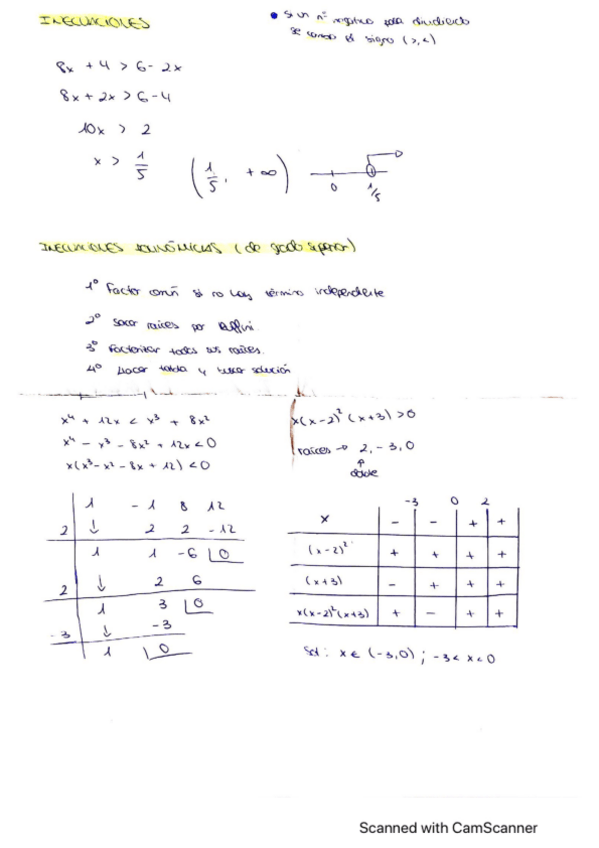 INECUACIONES
• Si un nº negativo pasa dividiendo
se cambia el signo (>,<)
8x + 4 > 6 - 2x
8x + 2x > 6 - 4
10x > 2
x > 1/5 (1/5, +∞) 0 1/5
INECUACIONES POLINÓMICAS (de grado superior)
1º Factor común si no hay término independiente
2º Sacar raíces por Ruffini.
3º Factorizar todas sus raíces.
4º Hacer tabla y buscar solución
x⁴ + 12x < x³ + 8x²
x⁴ - x³ - 8x² + 12x < 0
x(x³ - x² - 8x + 12) < 0
1 -1 8 12
2 ↓ 2 2 -12
1 1 -6 0
2 ↓ 2 6
1 3 0
-3 ↓ -3
1 0
x(x-2)²(x+3) > 0
raíces → 2, -3, 0
↑
doble
-3 0 2
x - - + +
(x-2)² + + + +
(x+3) - + + +
x(x-2)²(x+3) + - + +
Sol: x ∈ (-3,0) ; -3 < x < 0
Scanned with CamScanner